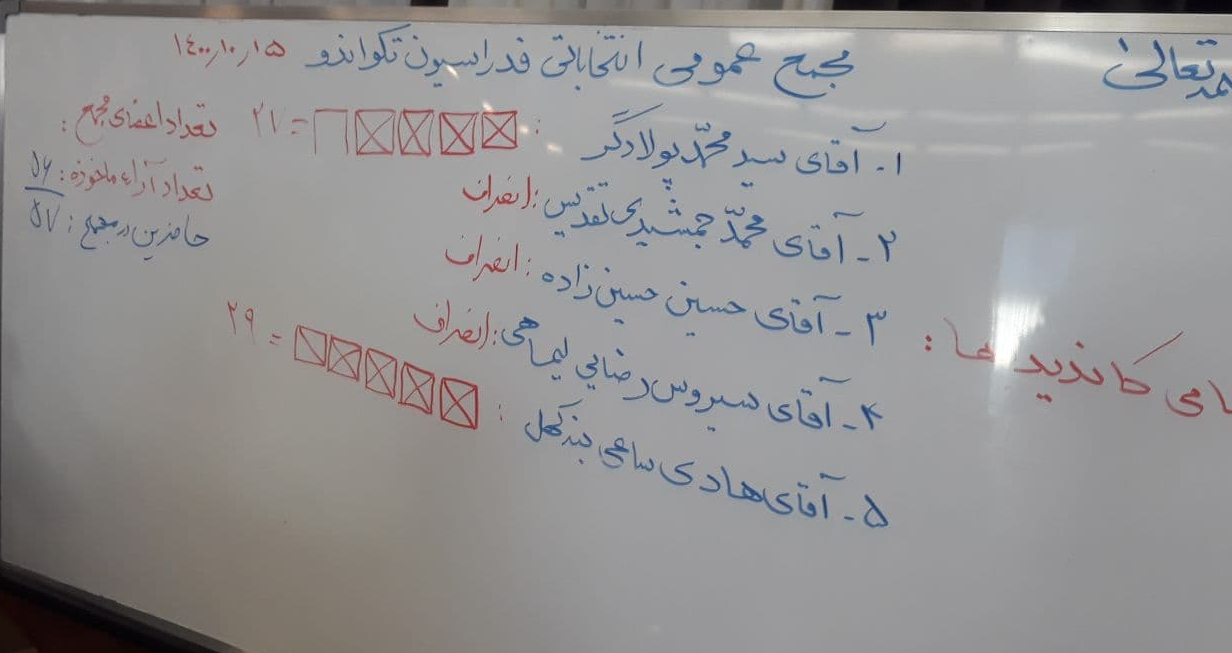 تعالی
مجمع عمومی انتخاباتی فدراسیون تکواندو ۱۴۰۰٫۱۰٫۱۵
کاندیدها :
۱- آقای سید محمّد پولادگر : = ۲۷
۲- آقای محمّد جمشیدی تقدیس : انصراف
۳- آقای حسین حسین زاده : انصراف
۴- آقای سیروس رضایی لیماهی : انصراف
۵- آقای هادی ساعی بندکهل : = ۲۹
تعداد اعضای مجمع :
تعداد آراء ماخوذه : ۵۶
حاضرین در مجمع : ۵۷